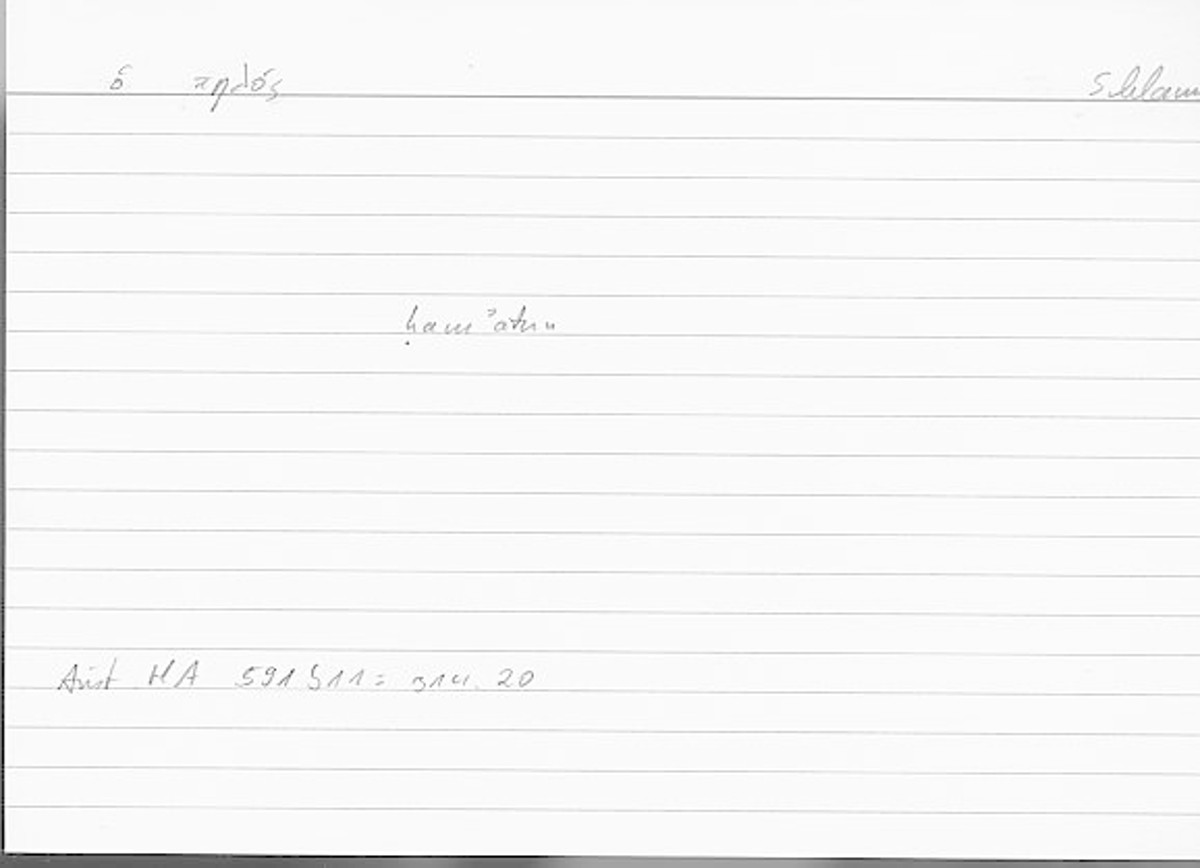 ὁ πηλός Schlamm
ḥam'atun
Arist HA 591 b 11 = 314. 20